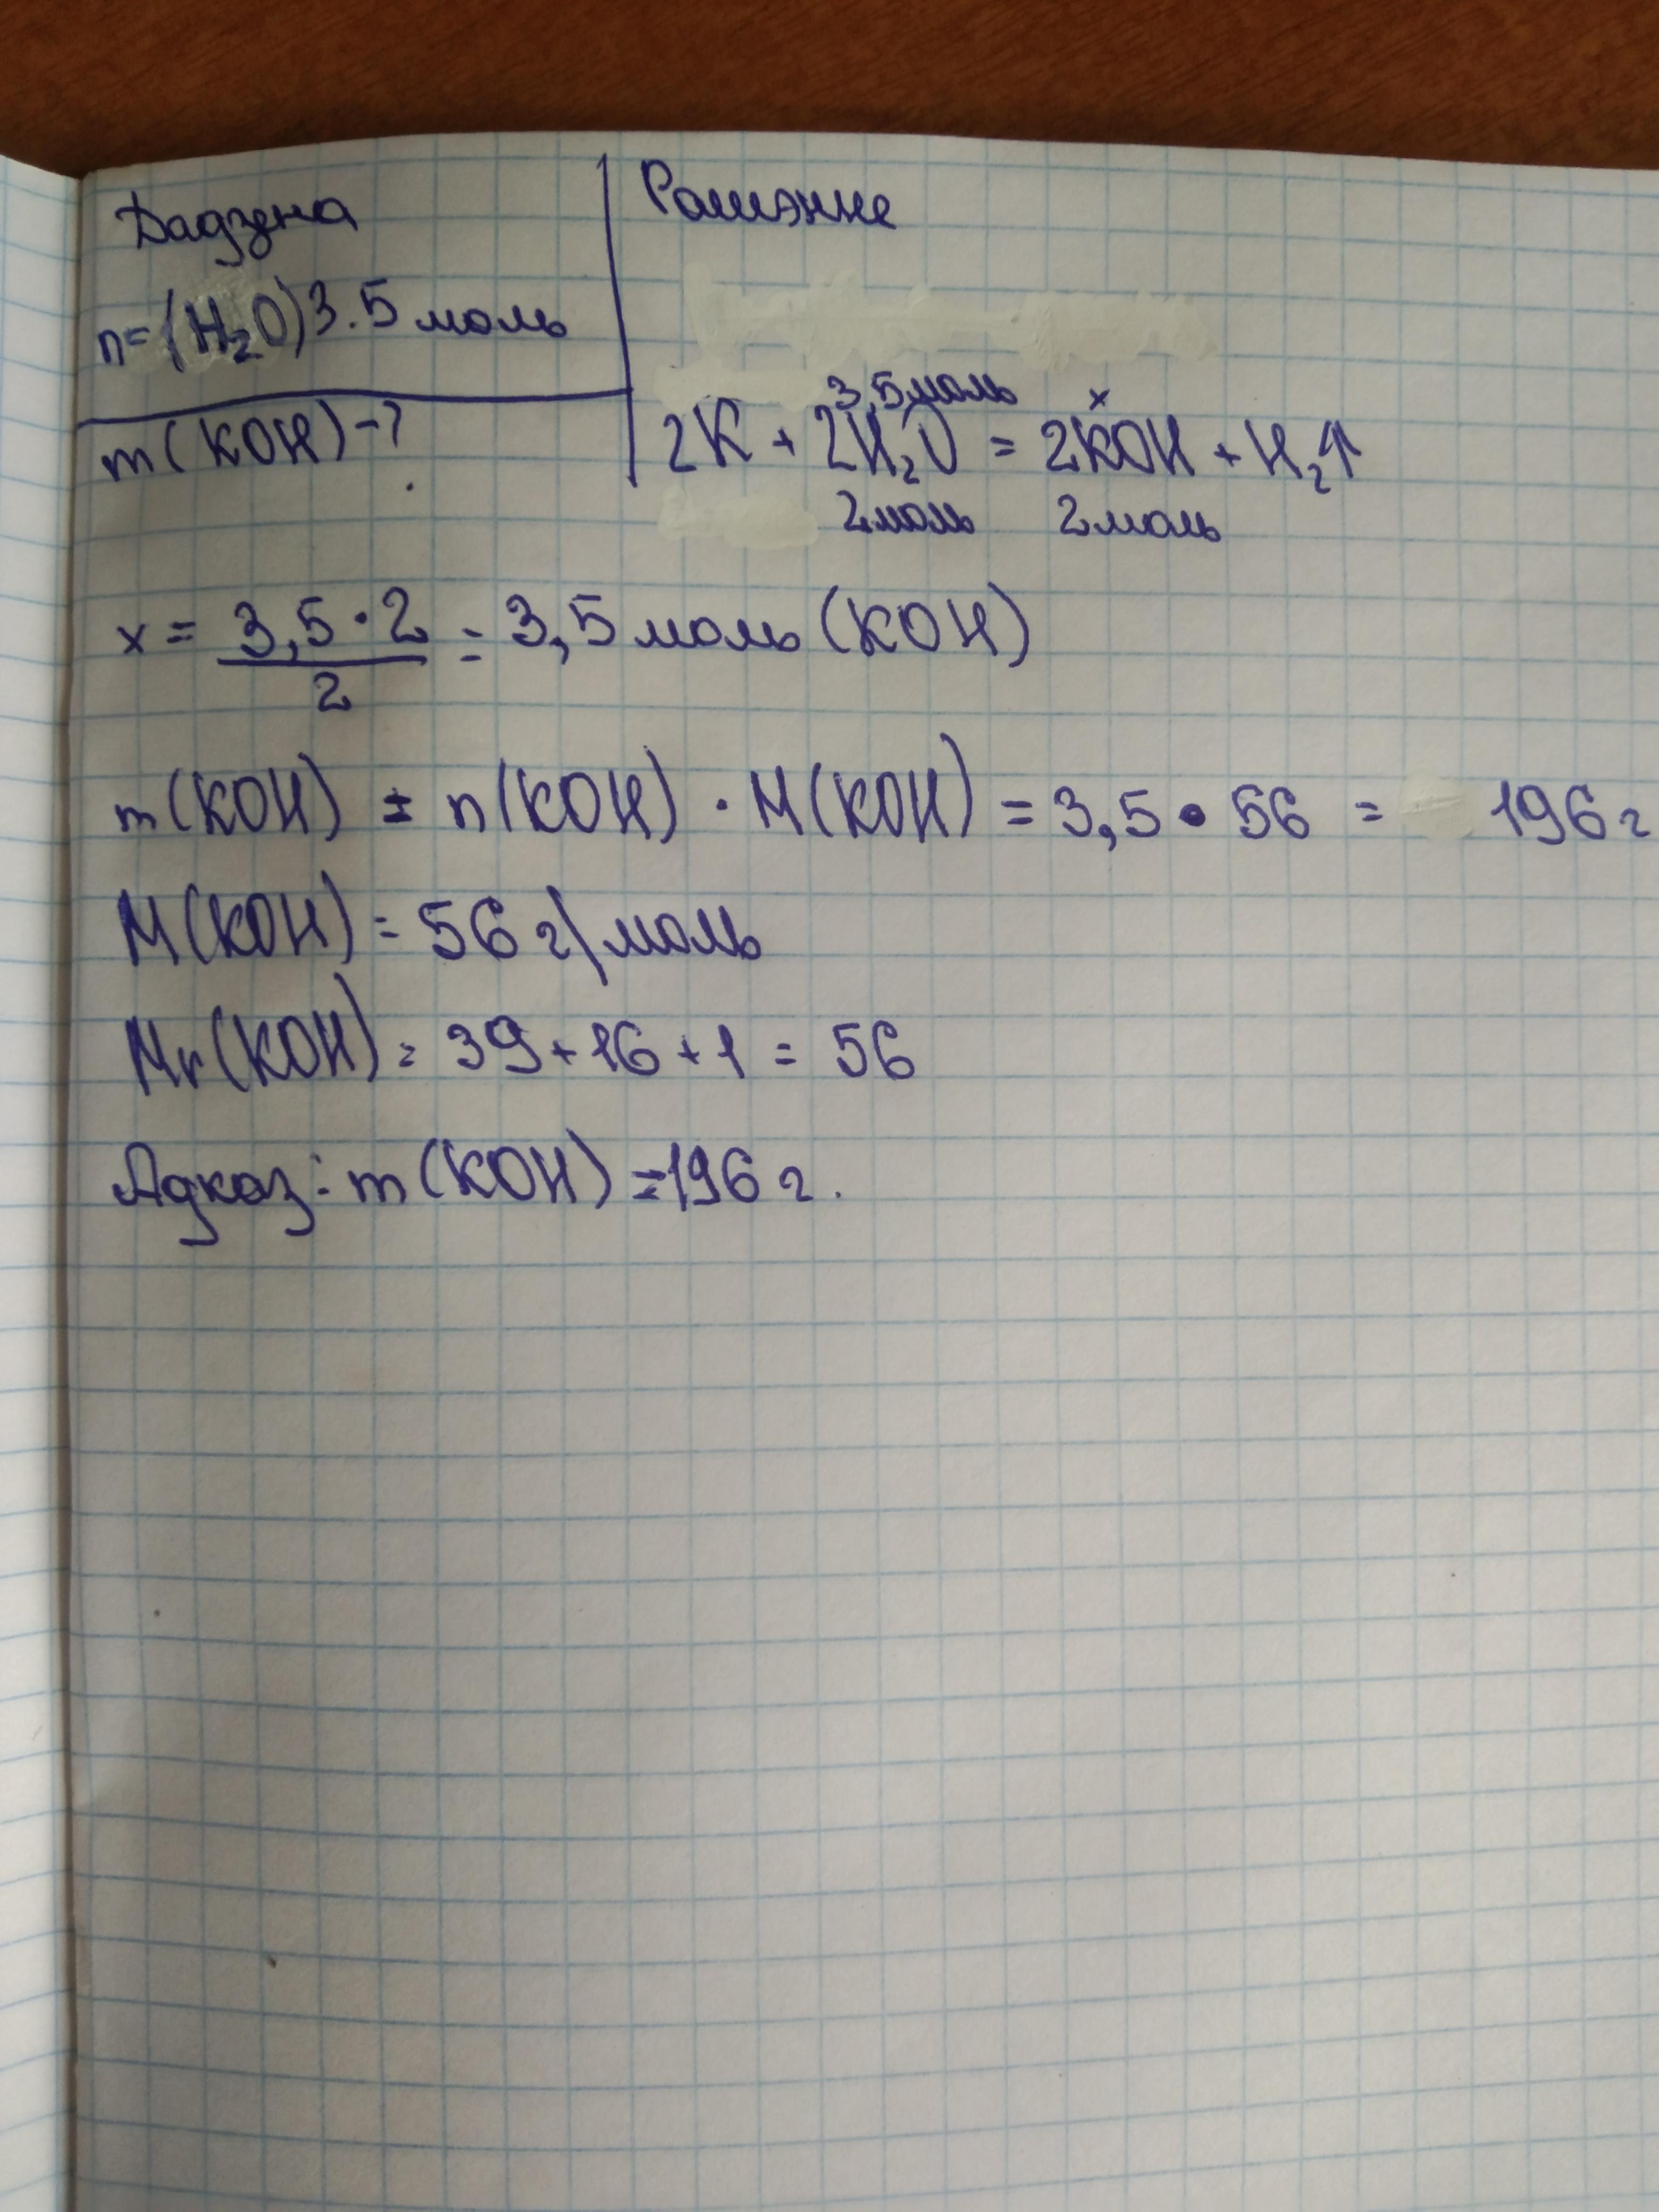 Дадзена
Рашэнне
n=(H₂O)3.5 моль
m(KOH)-?
3,5 моль x
2K + 2H₂O = 2KOH + H₂↑
2моль 2моль
x = 3,5·2 / 2 = 3,5 моль (KOH)
m(KOH) = n(KOH) · M(KOH) = 3,5 · 56 = 196 г
M(KOH) = 56 г/моль
Mr(KOH) = 39 + 16 + 1 = 56
Адказ: m(KOH) = 196 г.